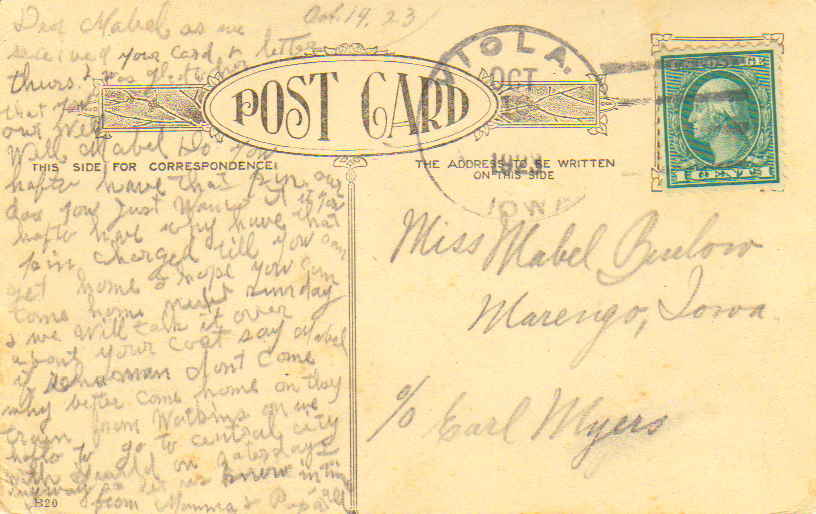 Oct. 19, 23
Dea Mabel as we
received your card & letter
Thurs. & was glad to hear
that you
our well
Well Mabel Do you
hafto have that pin our
das you Just Want it if you
hafto have why have that
pin charged till you can
get home I hope you can
come home next sunday
& we will talk it over
about your coat say Mabel
if dont come
why better come home on they
train from Watkins on we
hafto to go to central city
with on Saterday
anyway so let us know in time
from Momma & Papa all
POST CARD
THIS SIDE FOR CORRESPONDENCE.
THE ADDRESS TO BE WRITTEN
ON THIS SIDE
VIOLA.
OCT
IOWA
U.S. POSTAGE
Miss Mabel Buelow
Marengo, Iowa.
c/o Earl Myers
B20